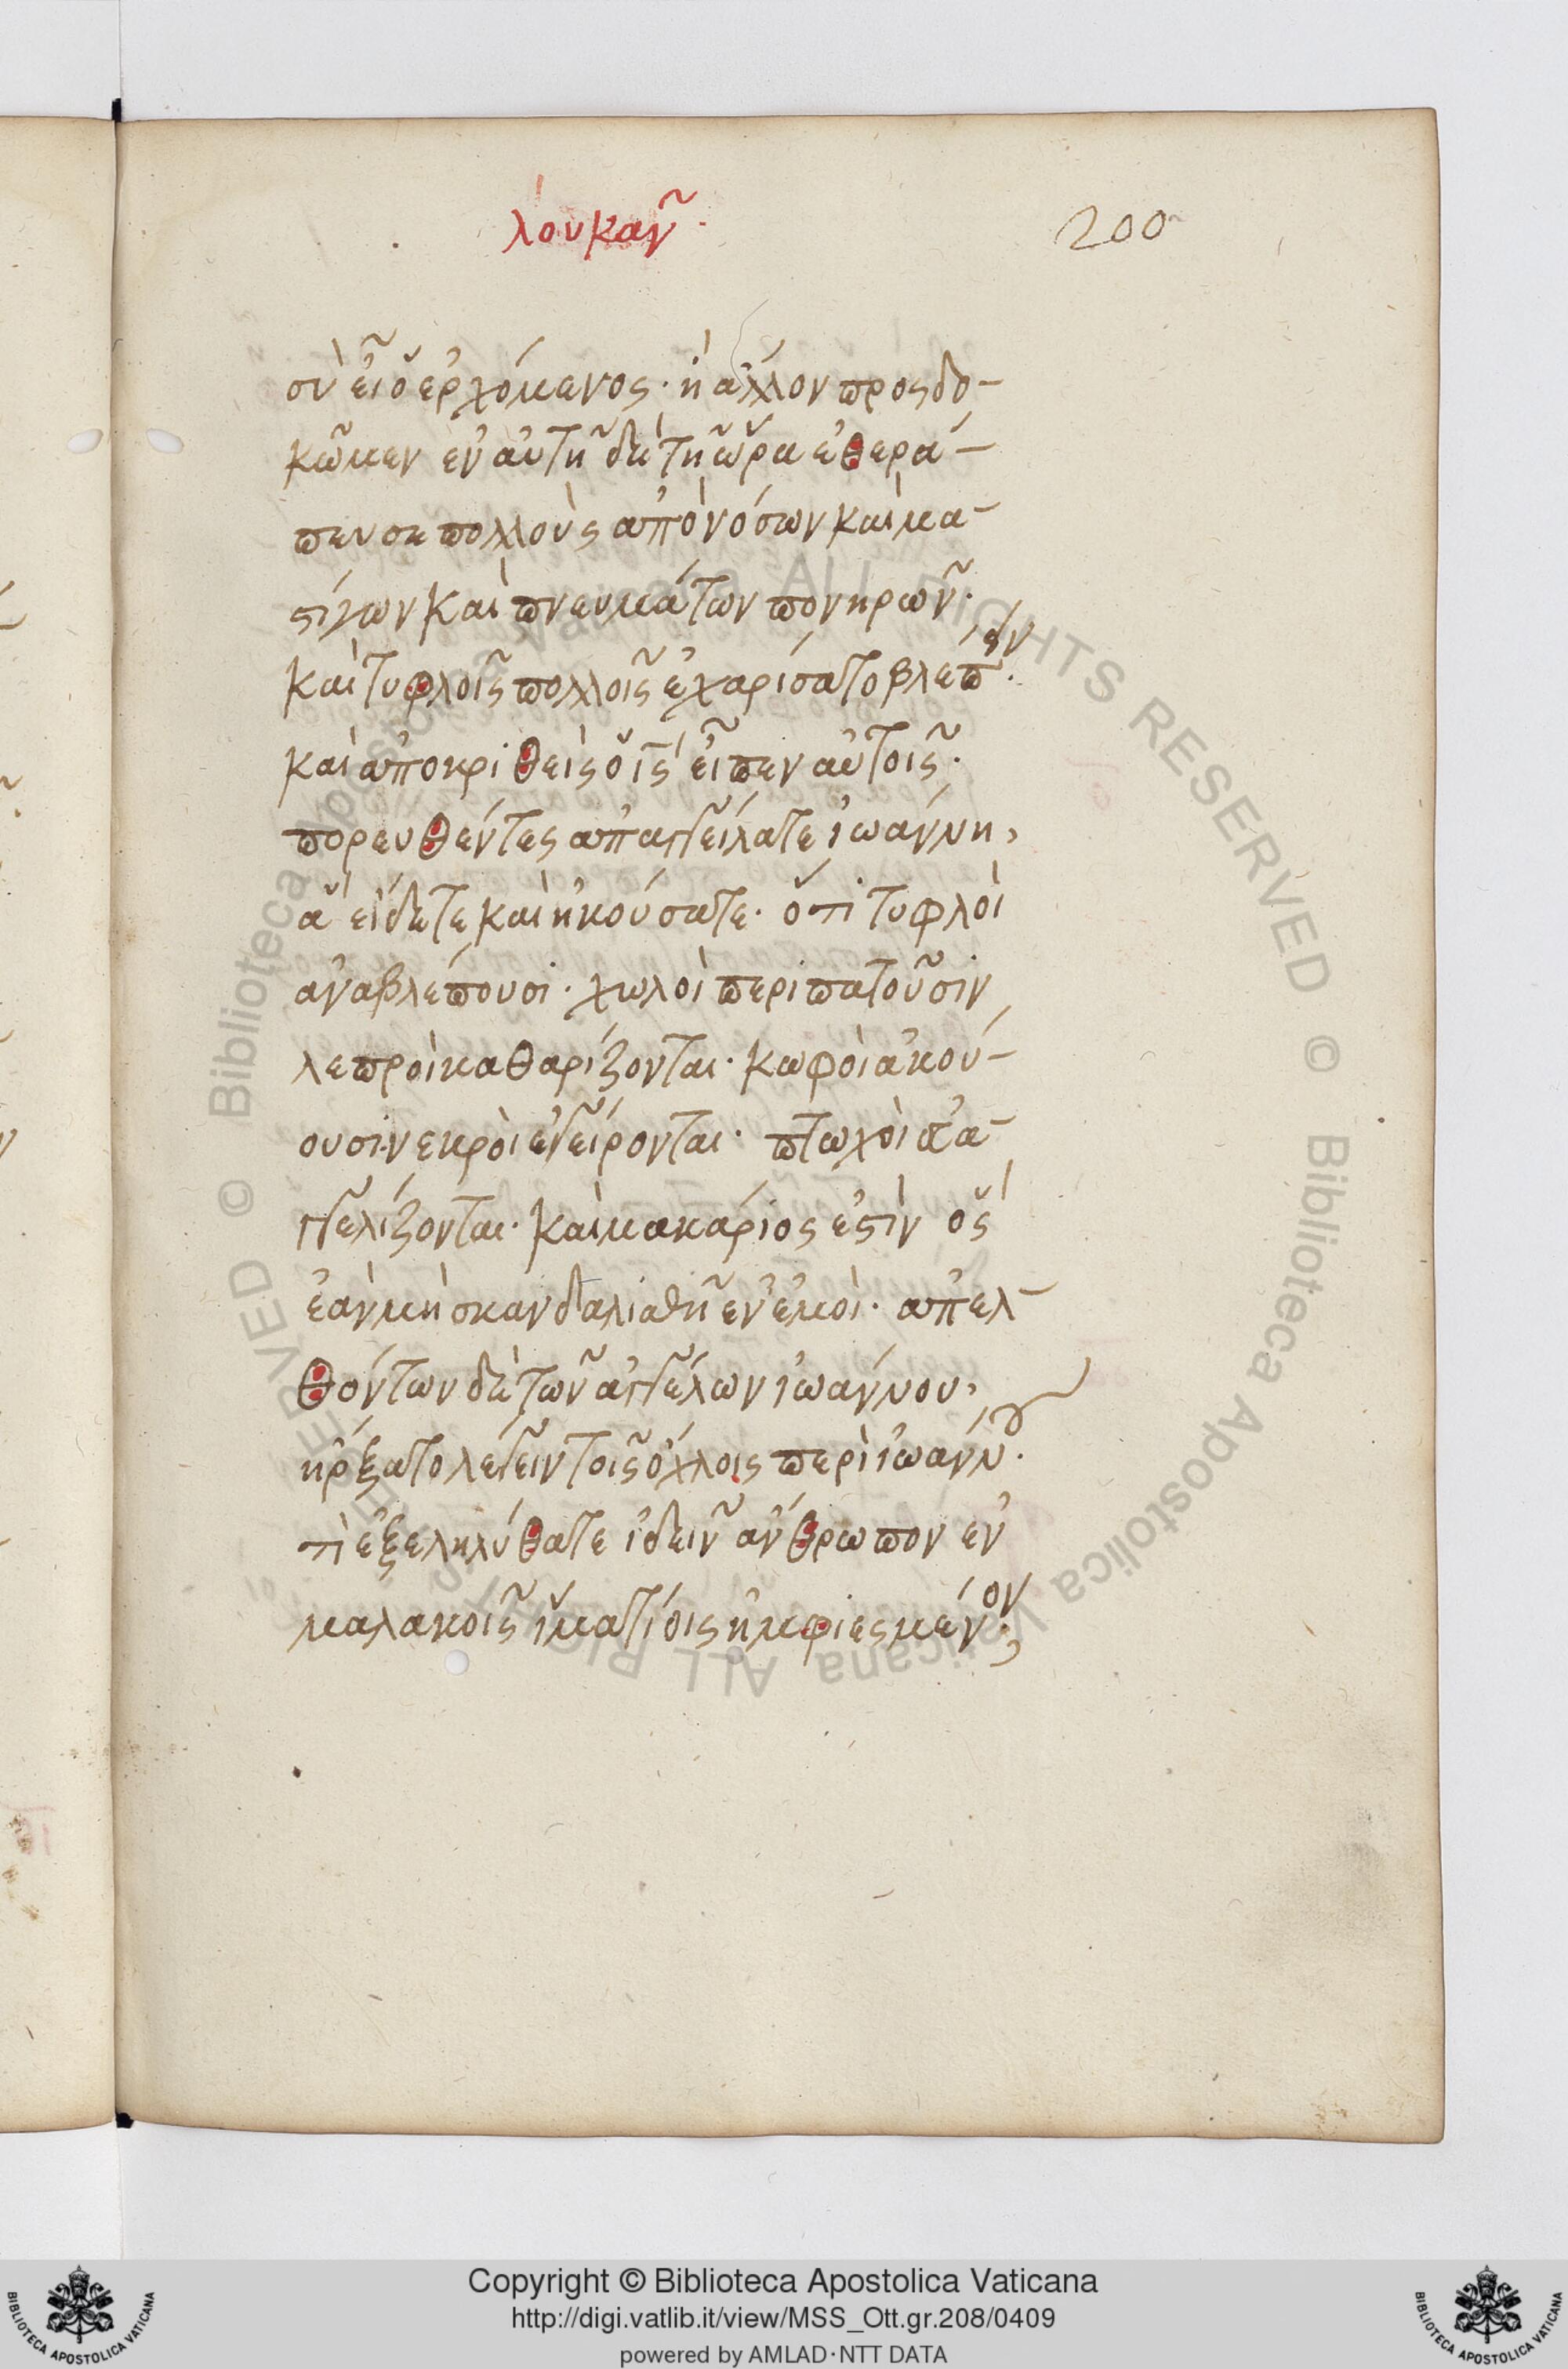 λουκᾶν·
200
σὺ εἶ ὁ ἐρχόμενος· ἢ ἄλλον προςδο-
κῶμεν ἐν αὐτῆ δὲ τῆ ὥρα ἐθερά-
πευσε πολλοὺς ἀπὸ νόσων καὶ μα-
στίγων καὶ πνευμάτων πονηρῶν·
καὶ τυφλοῖς πολλοῖς ἐχαρίσατο βλέπειν·
καὶ ἀποκριθεὶς ὁ ις εἶπεν αὐτοῖς·
πορευθέντες ἀπαγγείλατε ἰωάννη,
ἃ εἴδετε καὶ ἠκούσατε· ὅτι τυφλοὶ
ἀναβλέπουσι· χωλοὶ περιπατοῦσιν
λεπροὶ καθαρίζονται· κωφοὶ ἀκού-
ουσι· νεκροὶ ἐγείρονται· πτωχοὶ εὐα-
γγελίζονται· καὶ μακάριος ἐστὶν ὃς
ἐὰν μὴ σκανδαλισθῆ ἐν ἐμοί· ἀπελ-
θόντων δὲ τῶν ἀγγέλων ἰωάννου,
ἤρξατο λέγειν τοῖς ὄχλοις περὶ ἰωάννου·
τὶ ἐξεληλύθατε ἰδεῖν ἄνθρωπον ἐν
μαλακοῖς ἱματίοις ἠμφιεσμένον;
Copyright © Biblioteca Apostolica Vaticana
http://digi.vatlib.it/view/MSS_Ott.gr.208/0409
powered by AMLAD·NTT DATA